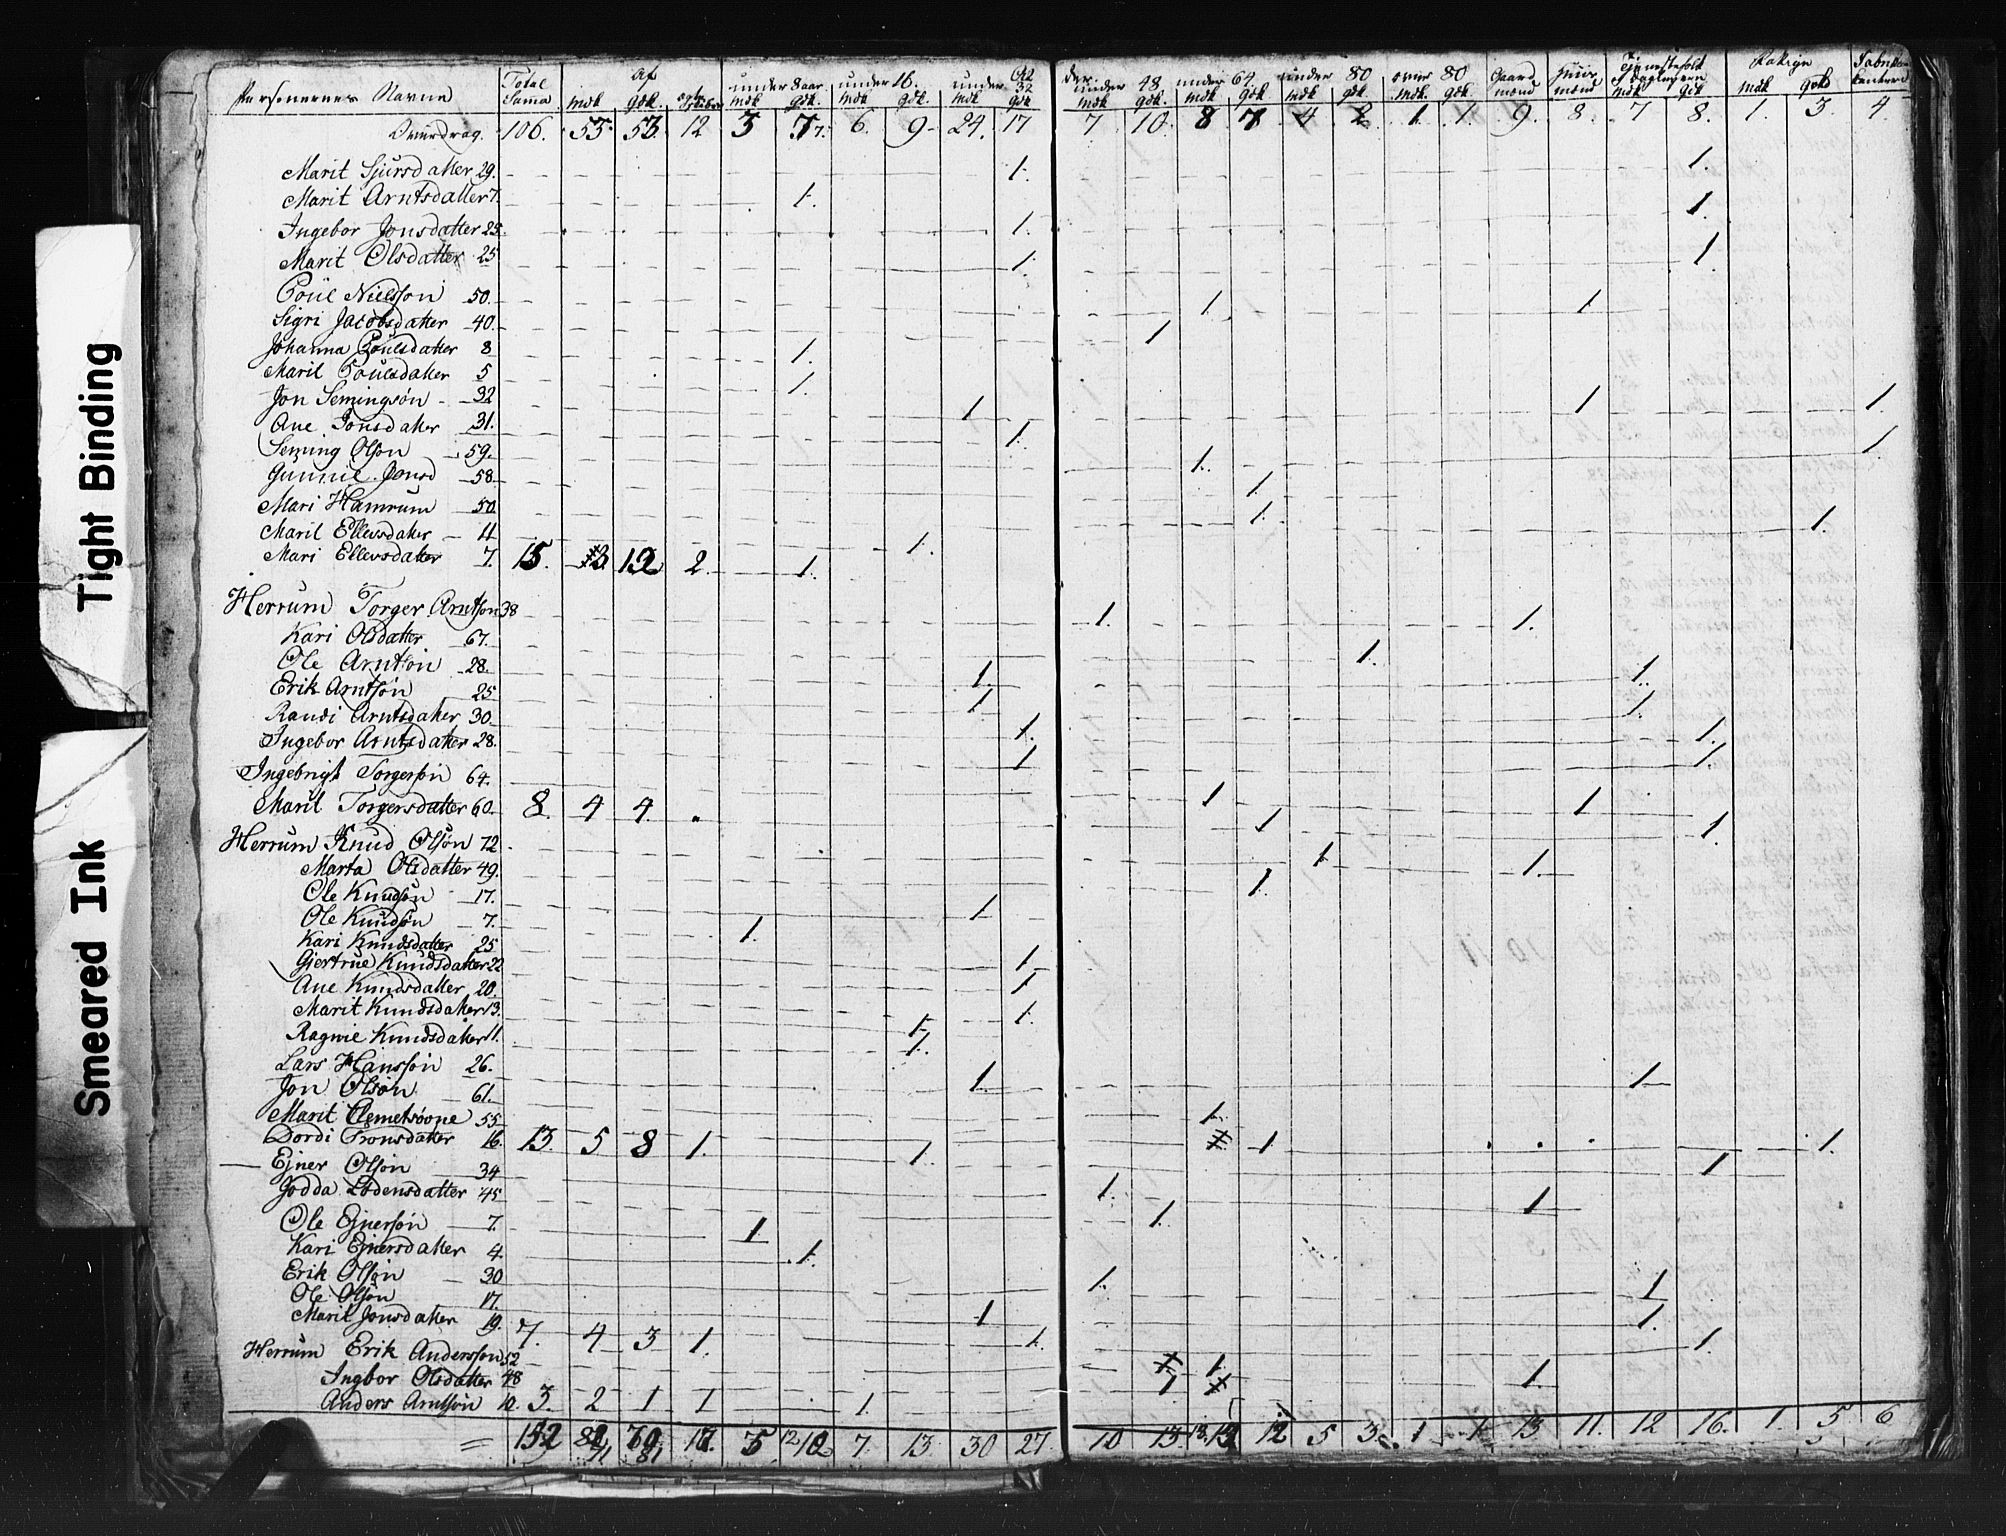 Tight Binding
Smeared Ink
Personernes Navne Total Suma Af mdk gdk. under 8 aar mdk gdk. under 16. mdk gdk. under 32 mdk gdk under 48 mdk. gdk. under 64 mdk. gdk. under 80 mdk. gdk. over 80 mdk. gdk. Gaard mænd Huus mænd Tjenestefolk mdk gdk Fattige mdk gdk
106. 53 53 12 3 6. 9 24. 17 7 10. 8 7 4 2 1 1. 9. 8. 7 8. 1. 3. 4.
Marit Sjursdatter 29. 1. 1.
Marit Arntsdatter 7. 1. 1.
Ingebor Jonsdatter 25. 1.
Marit Olsdatter 25 1. 1.
Poul Nielssøn 50. 1. 1.
Sigri Jacobsdatter 40. 1
Johanna Poulsdatter 8 1.
Marit Poulsdatter 5 1.
Jon Semingsøn 32 1 1 1.
Ane Jonsdatter 31. 1.
Seming Olsøn 59. 1. 1
Gunnil Jonsd 58 1
Mari Hamrum 50 1. 1.
Marit Ellevsdatter 11 1.
Mari Ellevsdatter 7. 15. 3 12 2 1.
Herrum Torger Arntsøn 38 1. 1.
Kari Olsdatter 67. 1.
Ole Arntsøn 28. 1. 1.
Erik Arntsøn 25 1 1.
Randi Arntsdatter 30. 1. 1.
Ingebor Arntsdatter 28. 1 1.
Ingebrigt Torgersøn 64. 1 1
Marit Torgersdatter 60. 8. 4 4. 1 1
Herrum Knud Olsøn 72 1 1.
Marta Olsdatter 49. 1.
Ole Knudsøn 17. 1
Ole Knudsøn 7. 1.
Kari Knudsdatter 25 1.
Gjertrue Knudsdatter 22 1
Ane Knudsdatter 20. 1.
Marit Knudsdatter 13. 1.
Ragnie Knudsdatter 11. 1.
Lars Hanssøn 26. 1 1
Jon Olsøn 61. 1.
Marit Clemetsøvne 55 1 1.
Dordi Tronsdatter 16. 13. 5 8 1. 1. 1
Ejner Olsøn 34 1. 1
Jodda Lodensdatter 45 1.
Ole Ejnersøn 7. 1
Kari Ejnersdatter 4. 1.
Erik Olsøn 30 1. 1
Ole Olsøn 17. 1 1.
Marit Jonsdatter 19. 7. 4 3 1. 1. 1.
Herrum Erik Anderssøn 52 1. 1.
Ingbor Olsdatter 48 1
Anders Arntsøn 10. 3. 2 1 1 1.
= 152 5 12 7. 13. 30 27. 10 13. 13. 12 5 3. 1 1 13 11. 12 16. 1. 5 6